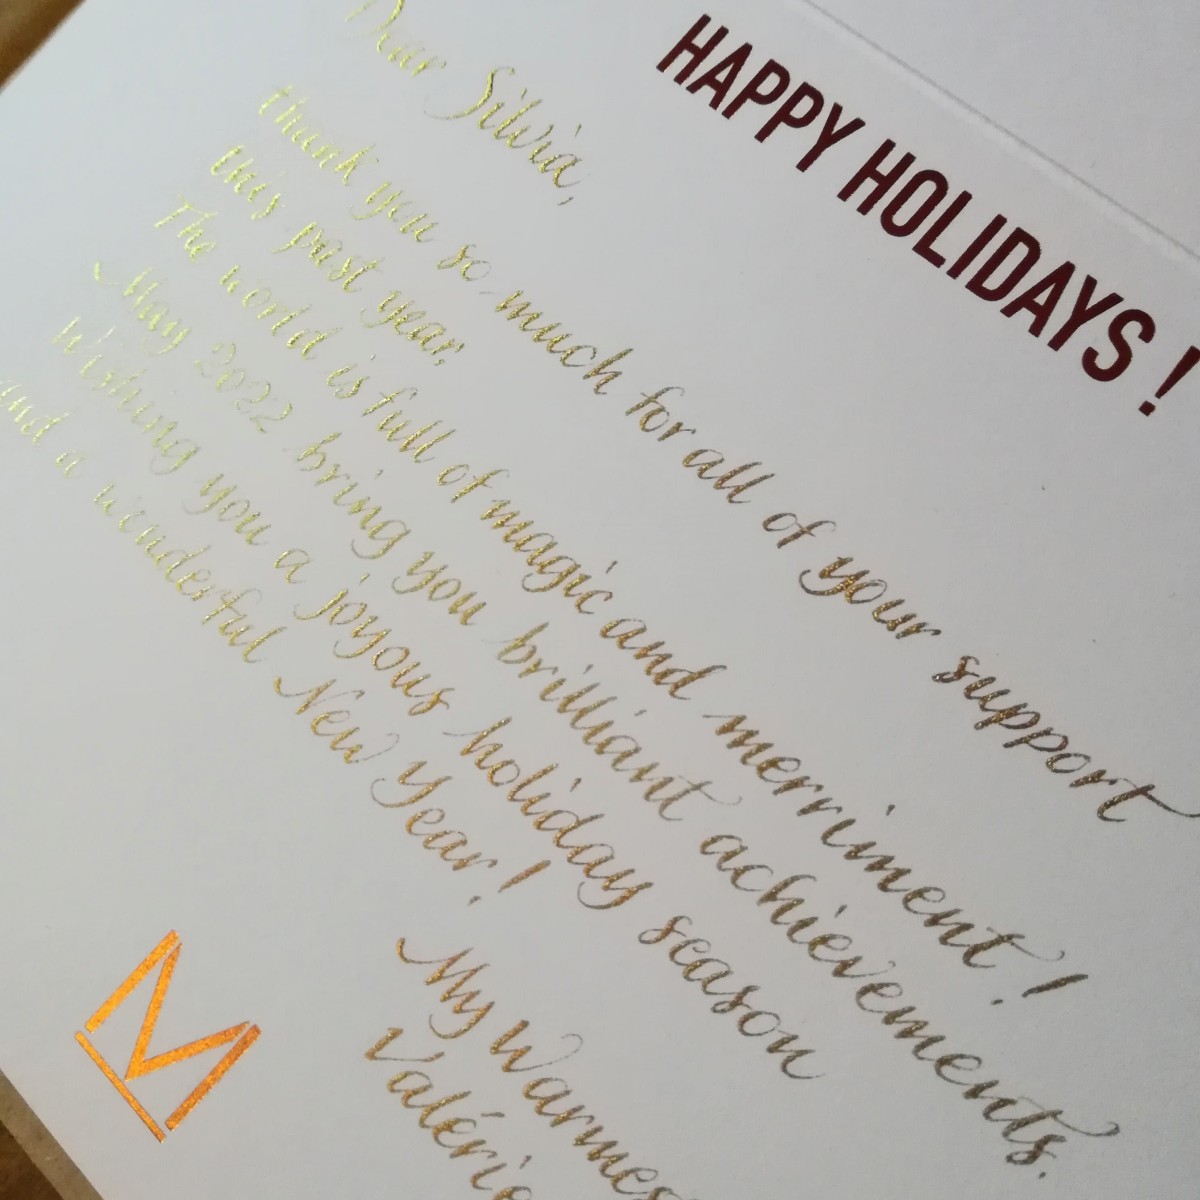 HAPPY HOLIDAYS !
Dear Silvia,
thank you so much for all of your support
this past year.
The world is full of magic and merriment !
May 2022 bring you brilliant achievements.
Wishing you a joyous holiday season
and a wonderful New Year !
My Warmes
Valérie
M